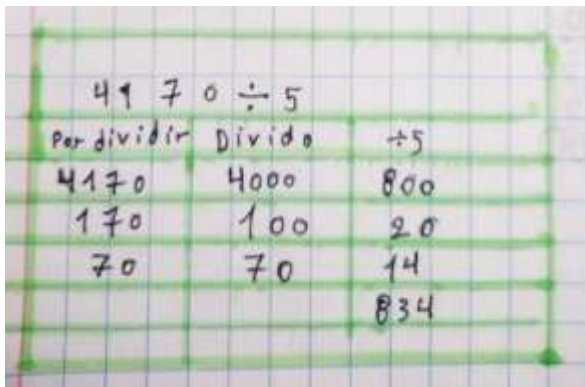 4170 ÷ 5
Por dividir Divido ÷5
4170 4000 800
170 100 20
70 70 14
834